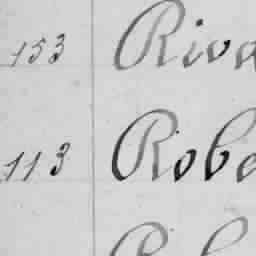 153 Riva
113 Robe